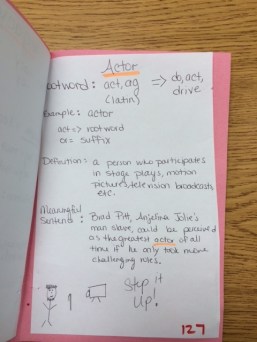 Actor
rootword: act, ag => do, act,
(latin) drive
Example: actor
act => rootword
or = suffix
Definition: a person who participates
in stage plays, motion
pictures, television broadcasts,
etc.
Meaningful
Sentence: Brad Pitt, Angelina Jolie's
man slave, could be perceived
as the greatest actor of all
time if he only took more
challenging roles.
Step it
Up!
127